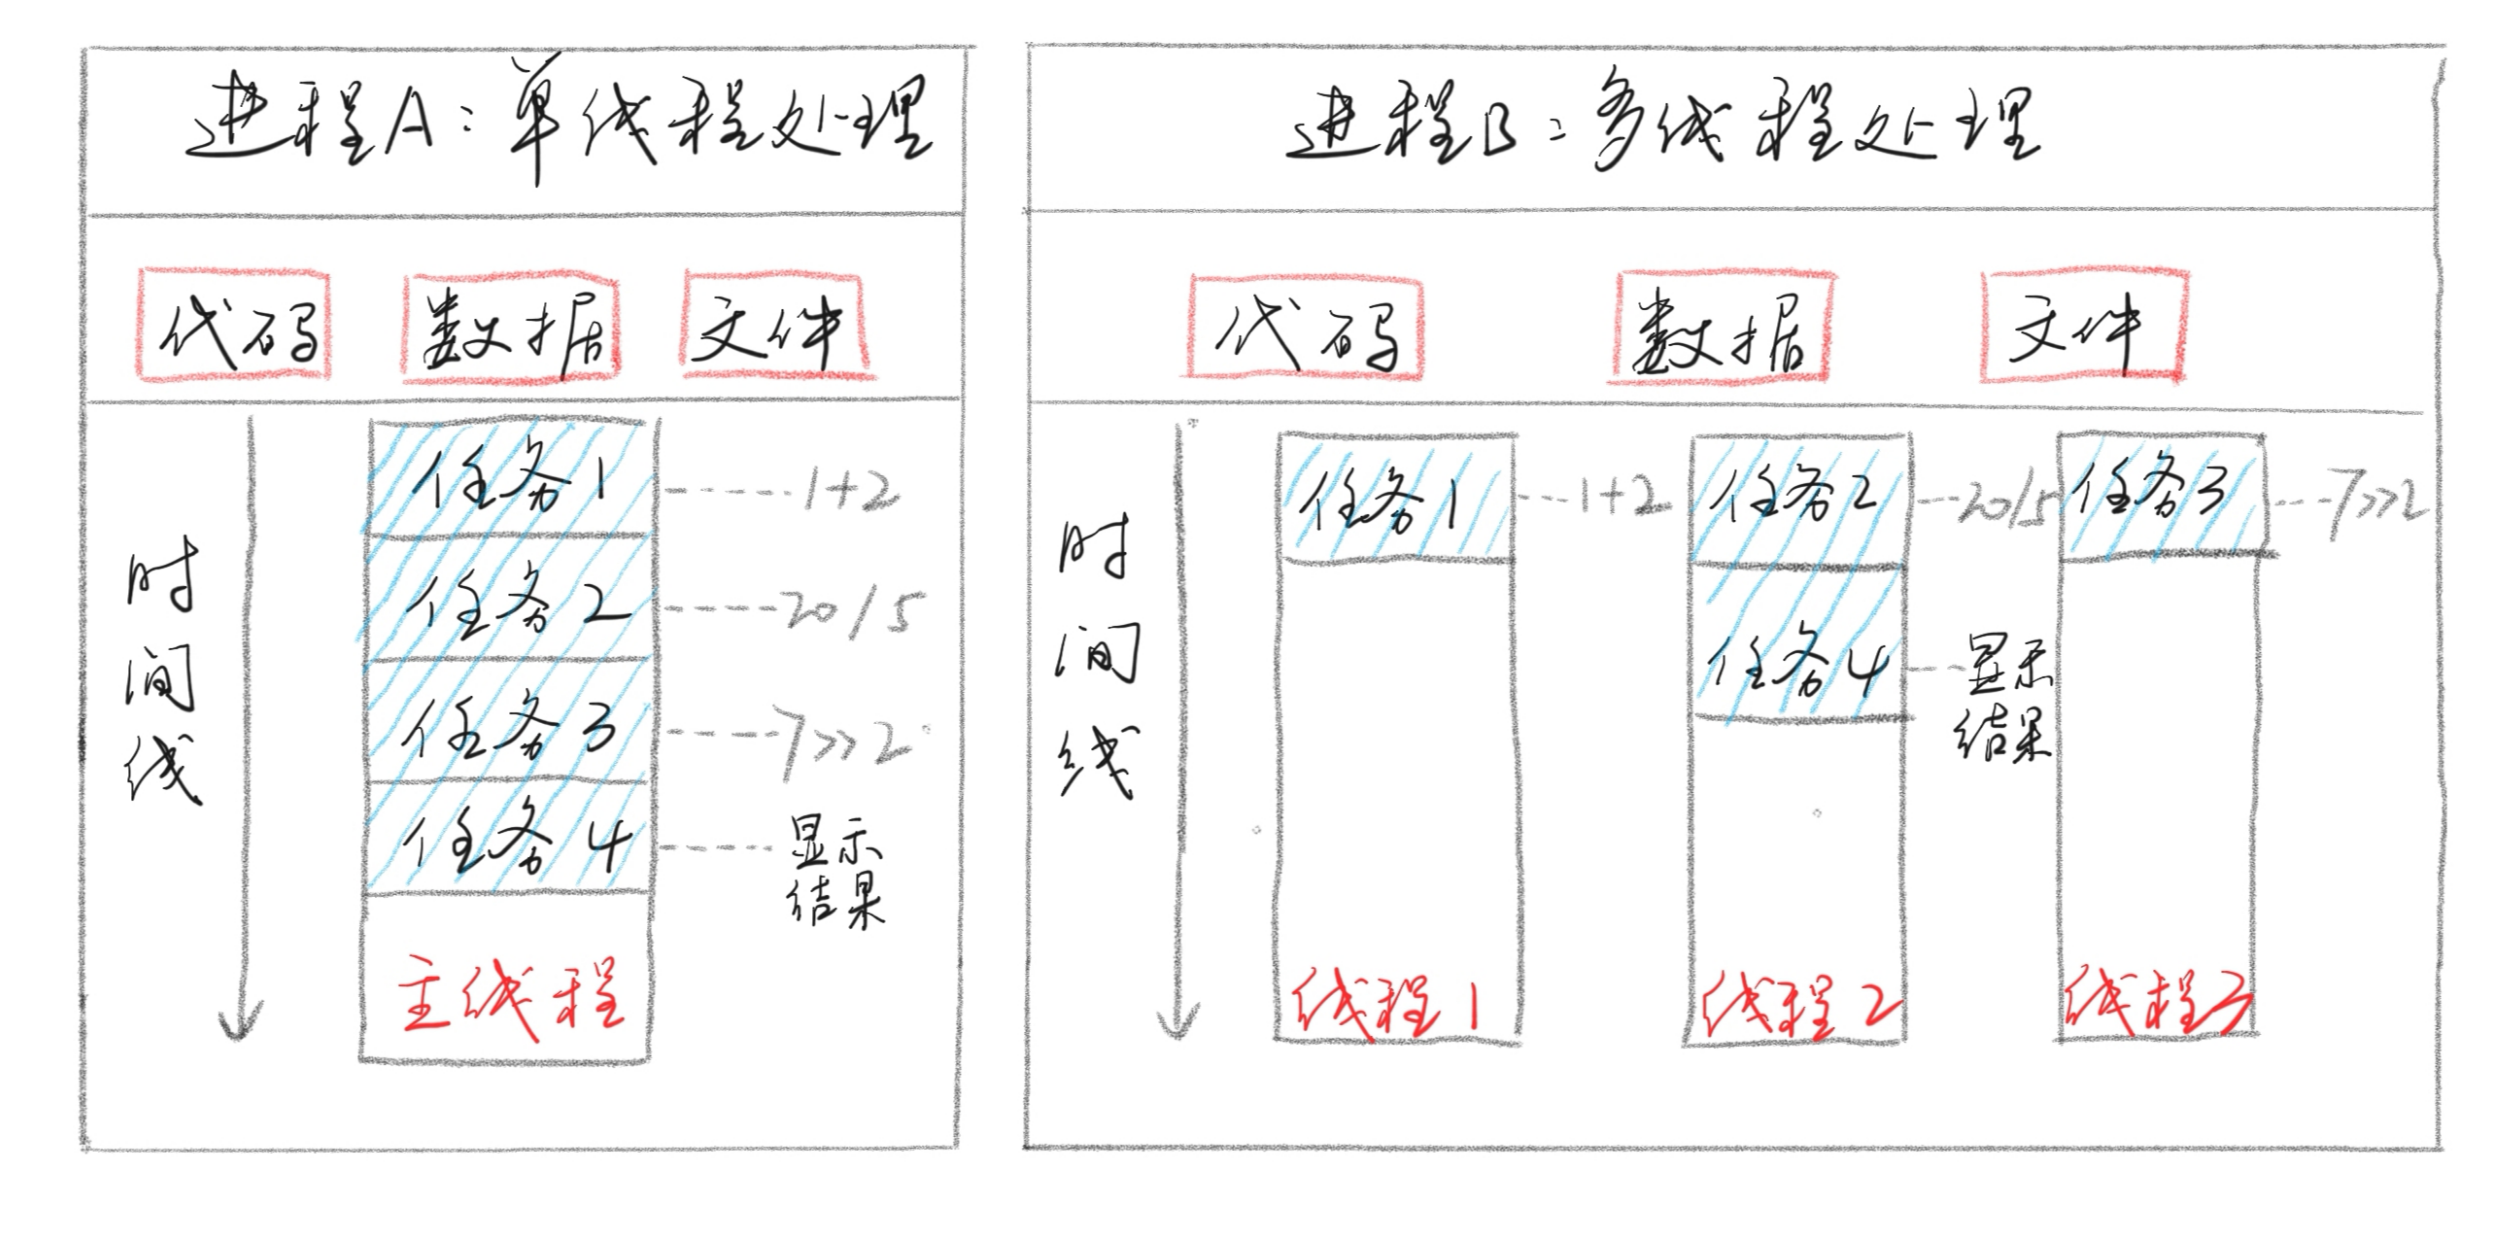 进程A:单线程处理
代码 数据 文件
时间线
任务1 1+2
任务2 20/5
任务3 7>>2
任务4 显示结果
主线程
进程B:多线程处理
代码 数据 文件
时间线
任务1 1+2 任务2 20/5 任务3 7>>2
任务4 显示结果
线程1 线程2 线程3